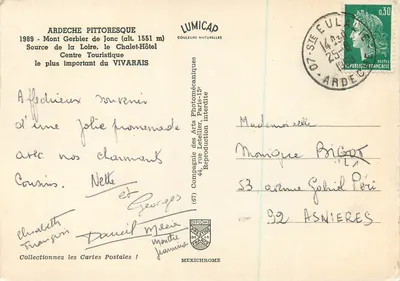 ARDECHE PITTORESQUE
1989 - Mont Gerbier de Jonc (alt. 1551 m)
Source de la Loire, le Chalet-Hôtel
Centre Touristique
le plus important du VIVARAIS
LUMICAP
COULEURS NATURELLES
07-STE EULALIE
ARDECHE
0,30
REPUBLIQUE FRANÇAISE
Affectueux souvenir
d'une jolie promenade
avec nos charmants
Cousins. Nette
et
Georges
Elisabeth
François
Daniel
Collectionnez les Cartes Postales !
(67) Compagnie des Arts Photomécaniques
44, rue Letellier, Paris-15e
Reproduction interdite
MEXICHROME
Mademoiselle
Monique BIGOT
53 avenue Gabriel Péri
92 ASNIERES